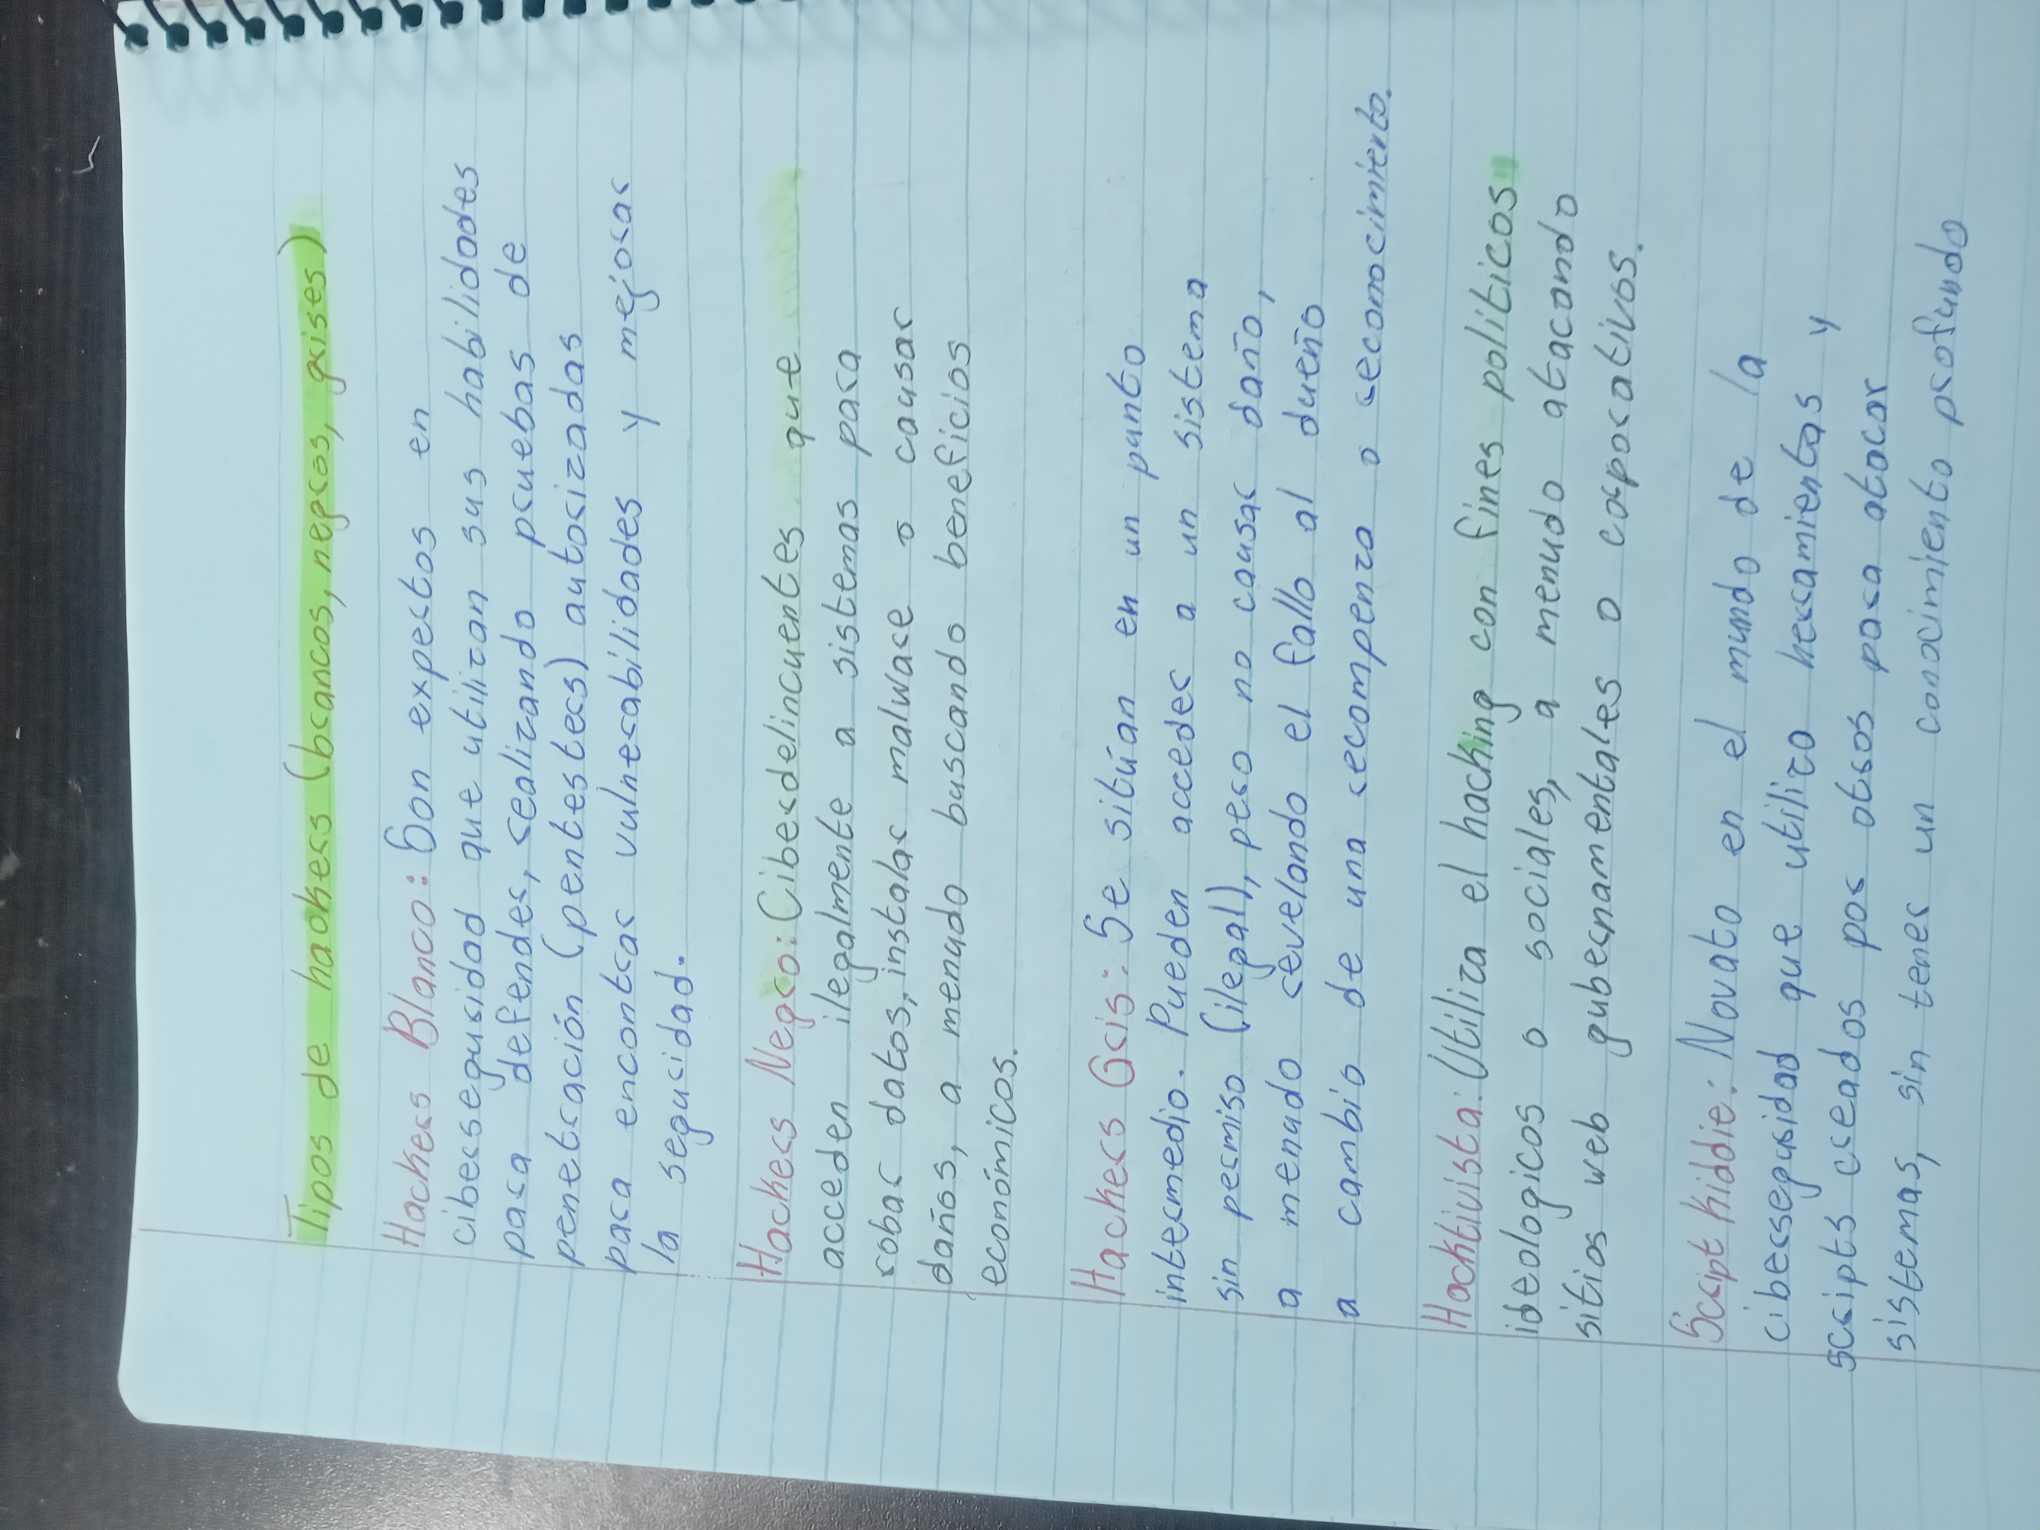 Tipos de hackers (brancos, negros, grises)
Hackers Blanco: Son expertos en
ciberseguridad que utilizan sus habilidades
para defender, realizando pruebas de
penetración (pentesters) autorizadas
para encontrar vulnerabilidades y mejorar
la seguridad.
Hackers Negro: Ciberdelincuentes que
acceden ilegalmente a sistemas para
robar datos, instalar malware o causar
daños, a menudo buscando beneficios
económicos.
Hackers Gris: Se sitúan en un punto
intermedio. Pueden acceder a un sistema
sin permiso (ilegal), pero no causar daño,
a menudo revelando el fallo al dueño
a cambio de una recompenza o reconocimiento.
Hacktivista: Utiliza el hacking con fines politicos
ideologicos o sociales, a menudo atacando
sitios web gubernamentales o corporativos.
Script kiddie: Novato en el mundo de la
ciberseguridad que utiliza herramientas y
scripts creados por otros para atacar
sistemas, sin tener un conocimiento profundo